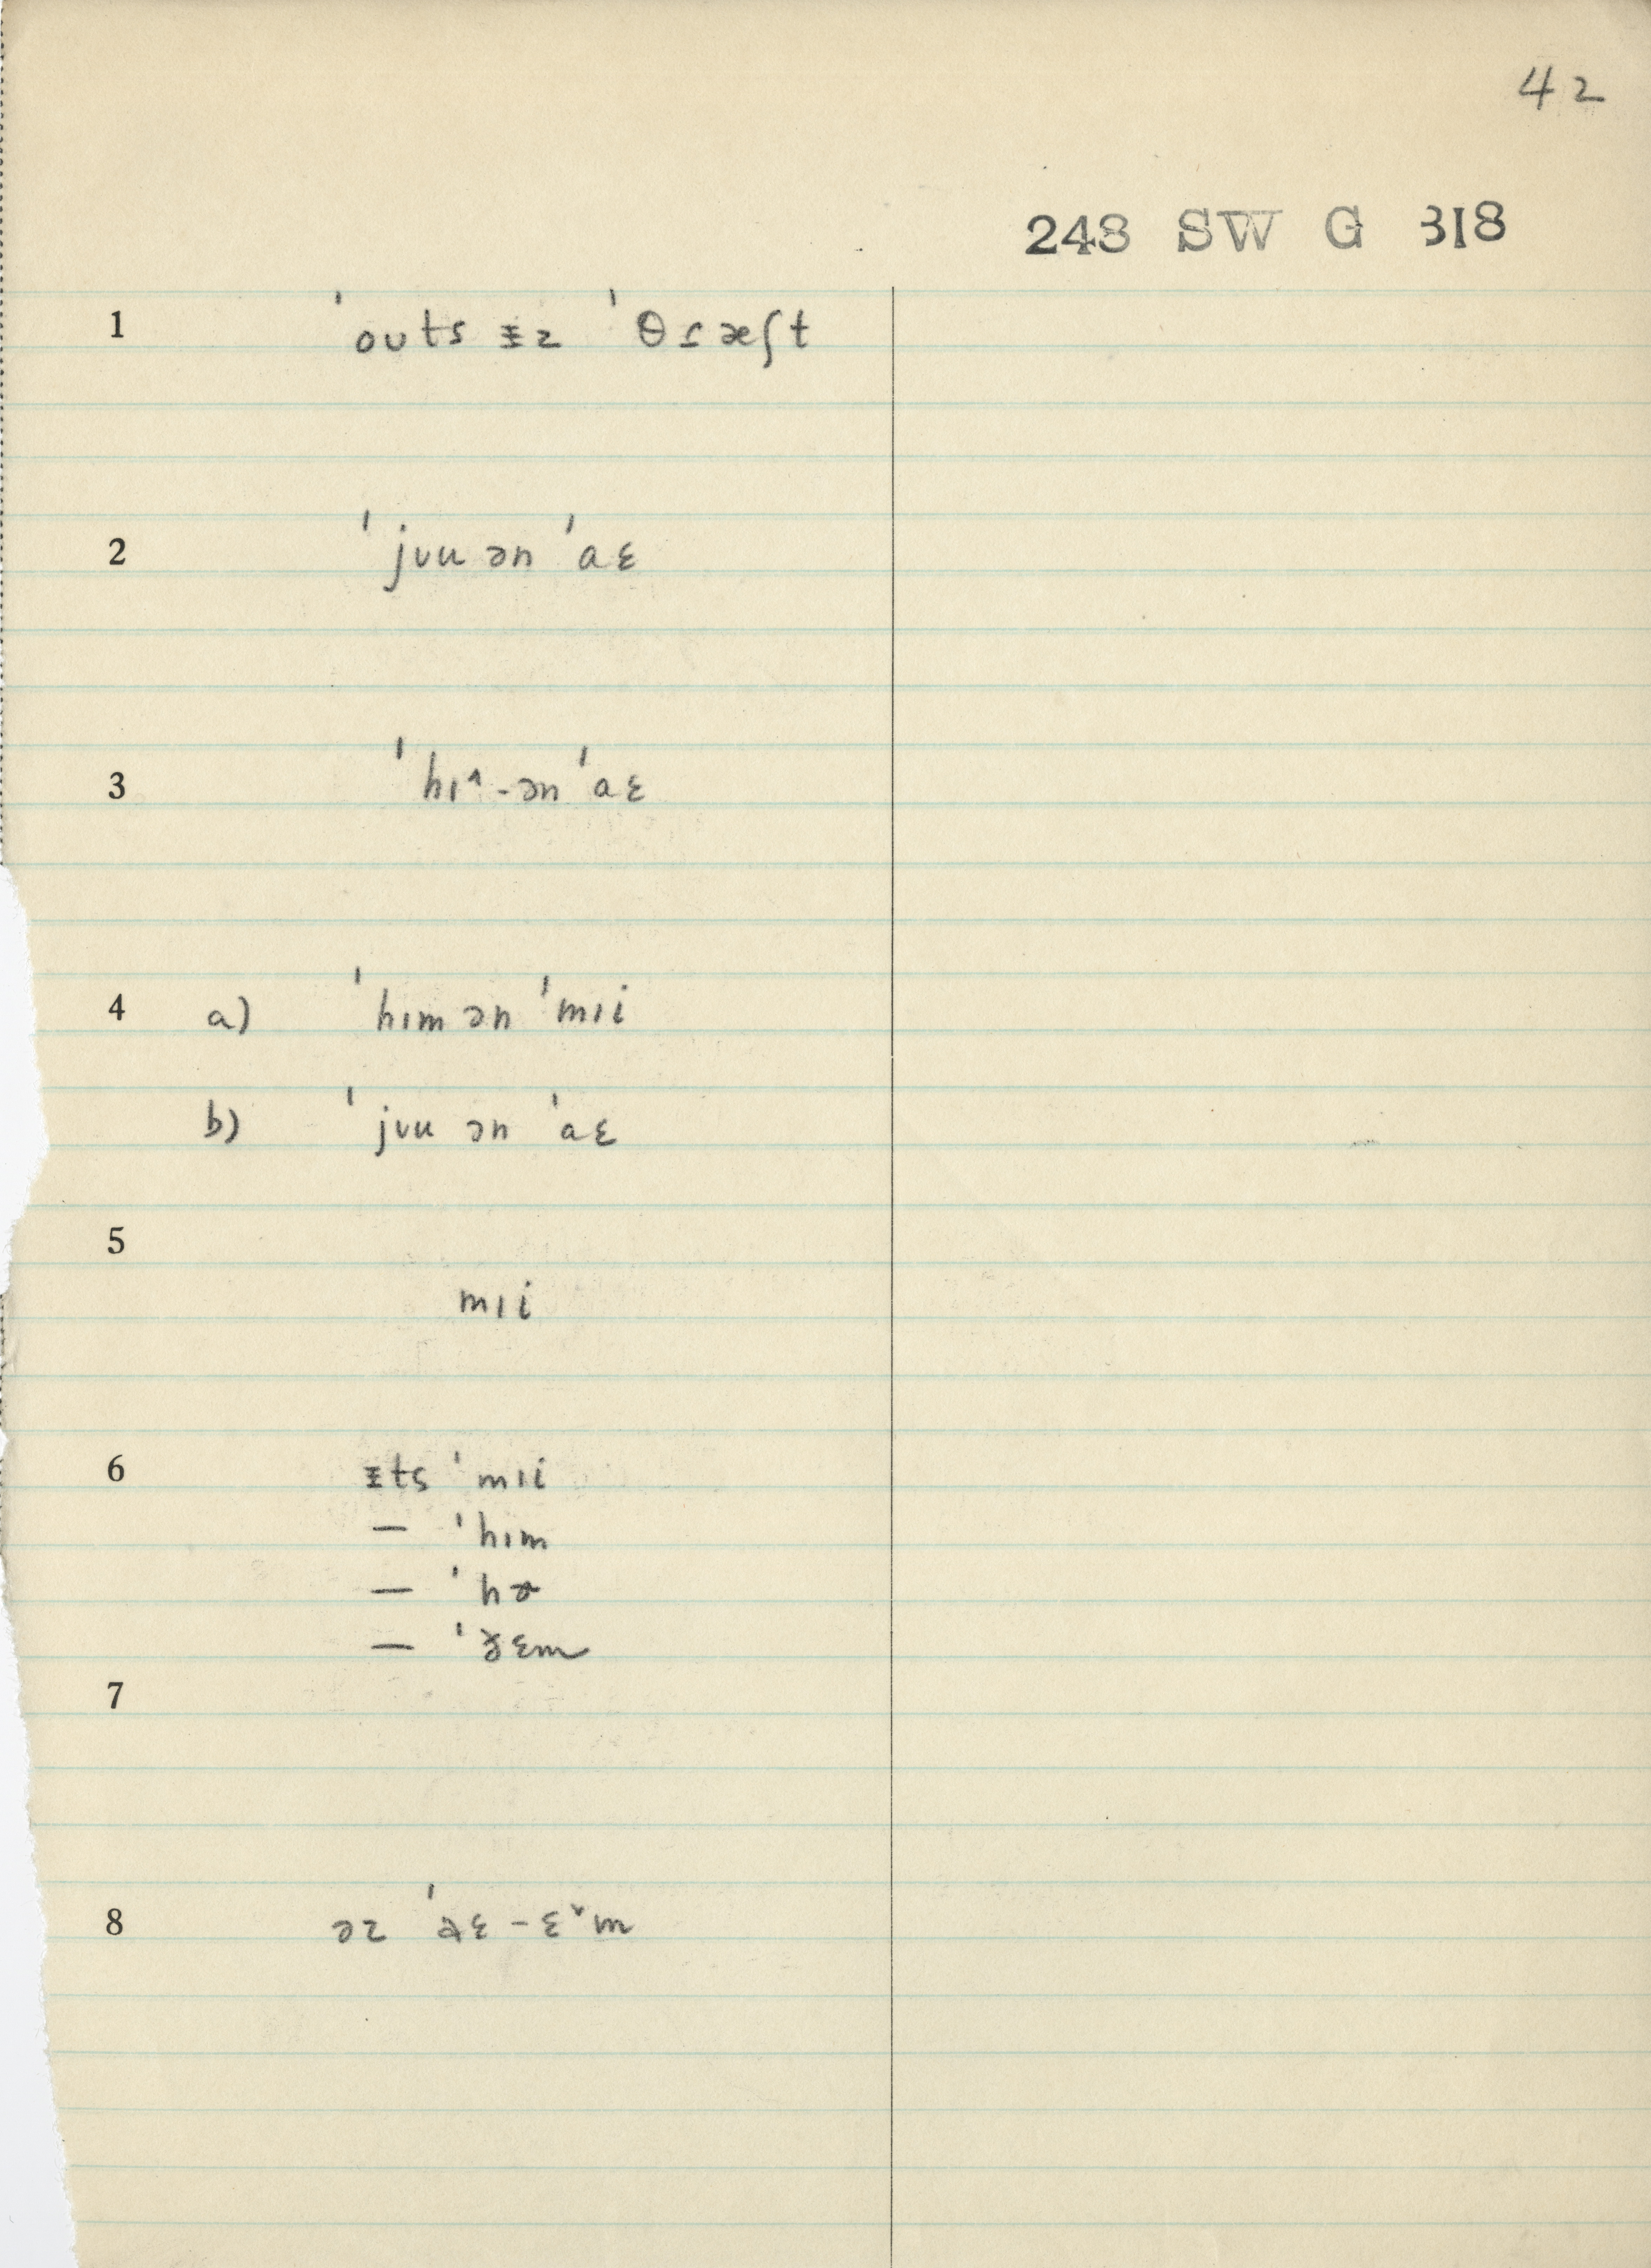 42
248 SW G 318
1 ˈouts ᵻz ˈθɾæʃt
2 ˈjʊu ən ˈaɛ
3 ˈhɪ˄-ən ˈaɛ
4 a) ˈhɪm ən ˈmɪi
b) ˈjʊu ən ˈaɛ
5
mɪi
6 ᵻts ˈmɪi
— ˈhɪm
— ˈhɚ
— ˈɛm
7
8 əz ˈɛ-ɛ˅m